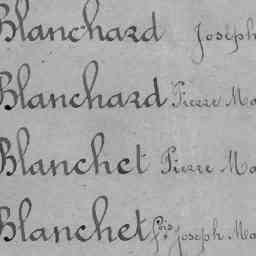 Blanchard Joseph
Blanchard Pierre Ma
Blanchet Pierre Ma
Blanchet fois Joseph Ma